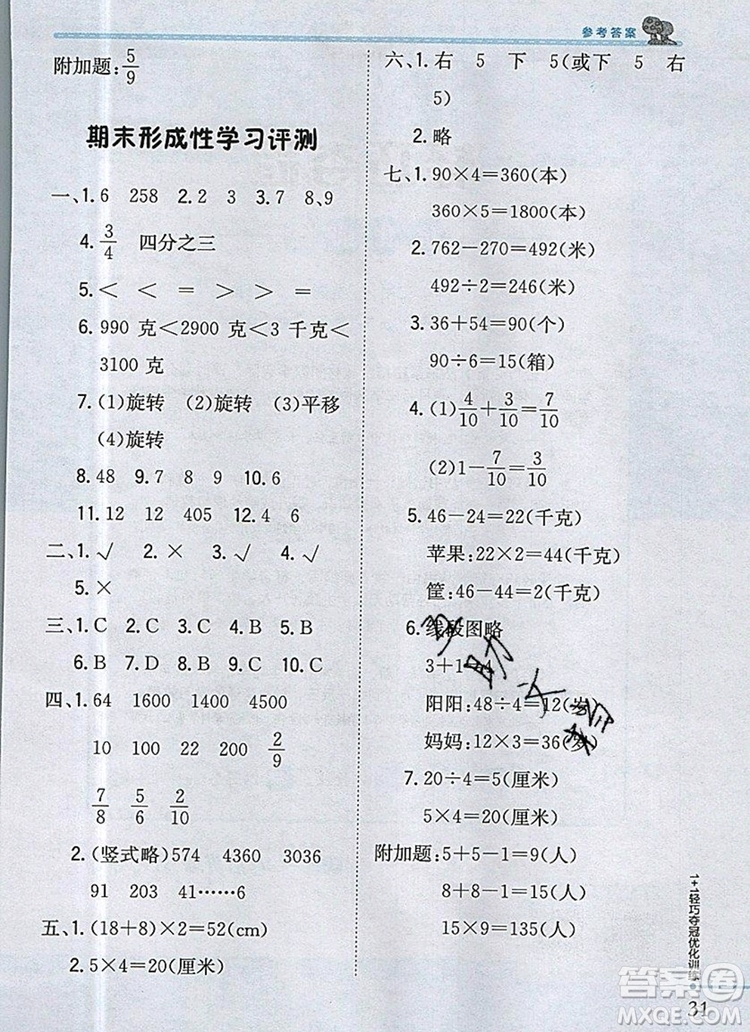 参考答案
附加题:5/9
期末形成性学习评测
一、1.6 258 2.2 3 3.7 8、9
4.3/4 四分之三
5.< < = > <
6.990 克<2900 克<3 千克<
3100 克
7.(1)旋转 (2)旋转 (3)平移
(4)旋转
8.48 9.7 8 9 10.6
11.12 12 405 12.4 6
二、1.√ 2.× 3.√ 4.√
5.×
三、1.C 2.C 3.B 4.B 5.B
6.B 7.D 8.C 9.C 10.C
四、1.64 1600 1400 4500
10 100 22 200 2/9
7/8 5/6 2/10
2.(竖式略)574 4360 3036
91 203 41……6
五、1.(18+8)×2=52(cm)
2.5×4=20(厘米)
六、1.右 5 下 5(或下 5 右
5)
2.略
七、1.90×4=360(本)
360×5=1800(本)
2.762-270=492(米)
492÷2=246(米)
3.36+54=90(个)
90÷6=15(箱)
4.(1)4/10+3/10=7/10
(2)1-7/10=3/10
5.46-24=22(千克)
苹果:22×2=44(千克)
筐:46-44=2(千克)
6.线段图略
3+1=4
阳阳:48÷4=12(岁)
妈妈:12×3=36(岁)
7.20÷4=5(厘米)
5×4=20(厘米)
附加题:5+5-1=9(人)
8+8-1=15(人)
15×9=135(人)
1+1轻巧夺冠优化训练
31
答案圈
MXQE.COM